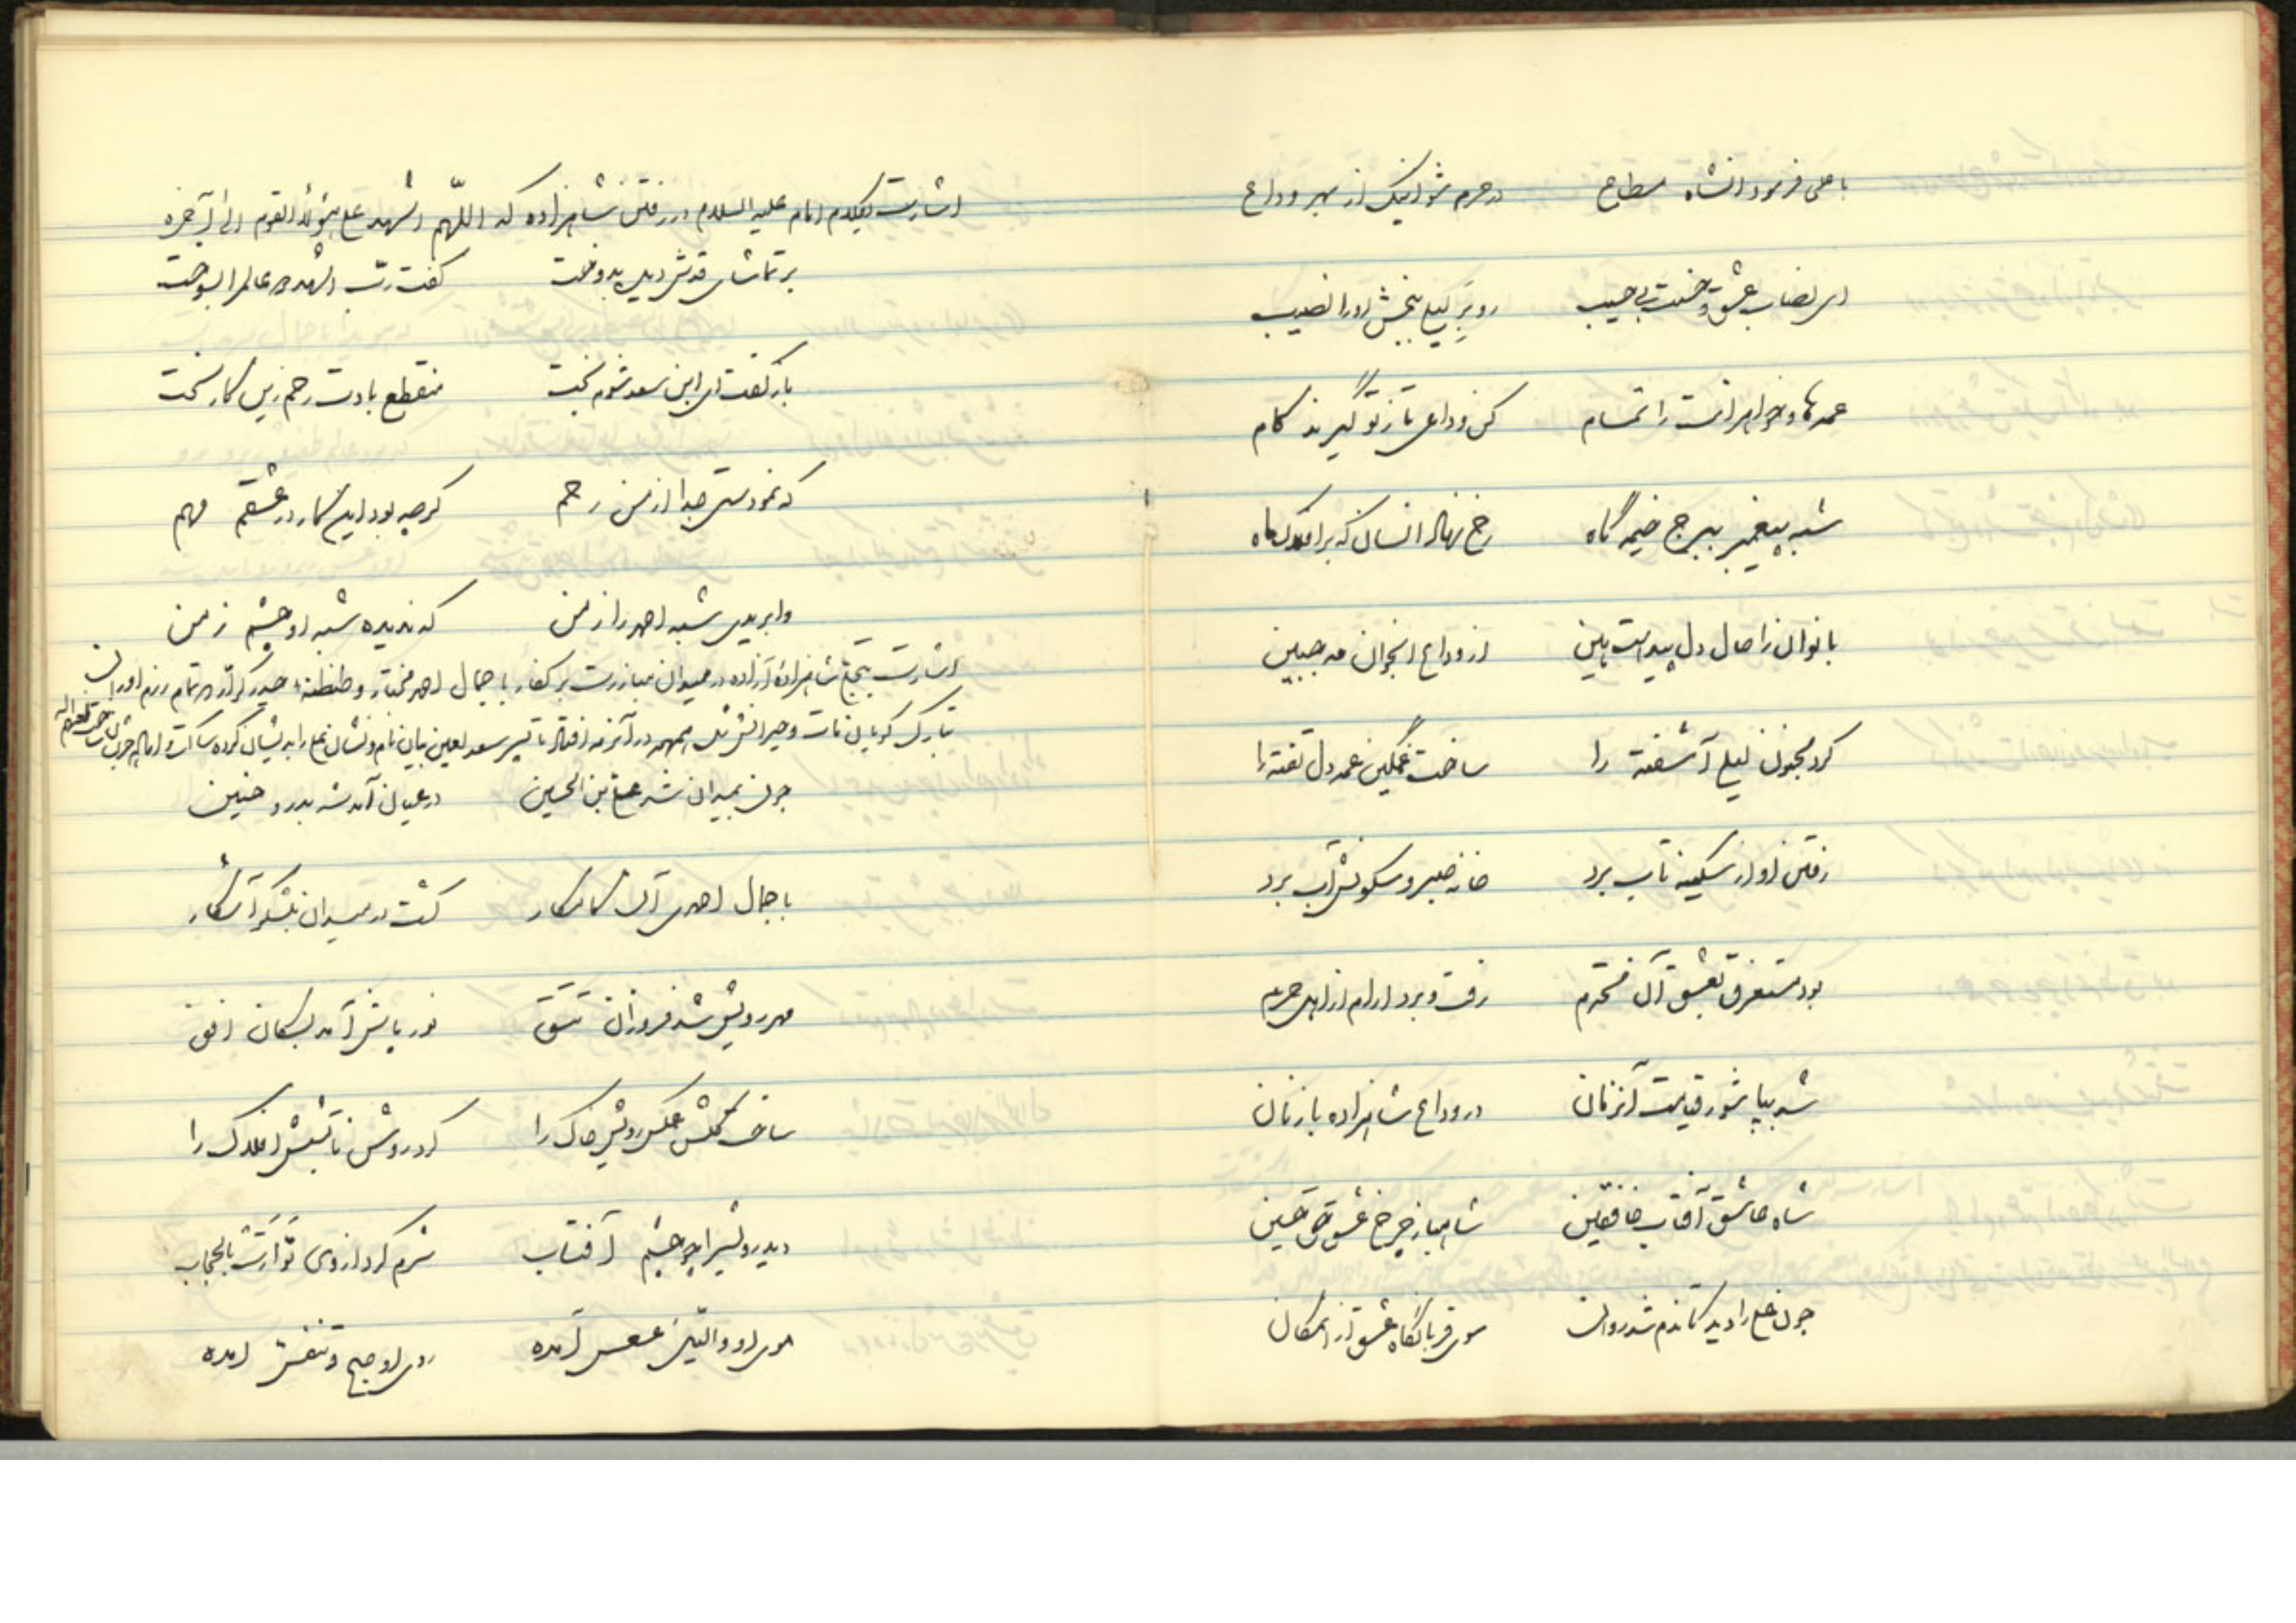 با علی فرمود آنشاه مطاع در حرم شو اینک از بهر وداع
ای نصاب عشق و حسنت بی حسیب رو بر لیلی ببخش او را نصیب
عمه‌ها و خواهرانت را تمام کن وداعی تا ز تو گیرند کام
شبه پیغمبر ببرج خیمه گاه رخ نهاد انسان که بر افلاک ماه
بانوان را حال دل پیداست بین از وداع انجوان مه جبین
کرد مجنون لیلی آشفته را ساخت غمگین عمه دل تفته را
رفتن او از سکینه تاب برد خانه صبر و سکونش آب برد
بود مستغرق بعشق آن محترم رفت و برد ارام از اهل حرم
شد بپا شور قیامت آنزمان در وداع شاهزاده با زنان
شاه عاشق آفتاب خافقین شاهباز چرخ عشق حق حسین
چون علی را دید کاندم شد روان سوی قربانگاه عشق از امکان
اشارت بکلام امام علیه السلام در رفتن شاهزاده که اللّهم اشهد علی هؤلاء القوم الی آخره
بر تماشای قدش دیده بدوخت گفت ربّ اشهد و عالم را بسوخت
باز گفت ای ابن سعد شوم بخت منقطع بادت رحم زین کار سخت
که نمودستی جدا از من رحم گرچه بود این کار در عشقم مهم
وابریدی شبه احمد را ز من که ندیده شبه او چشم زمن
اشارت بتجلی شاهزاده آزاده در میدان مبارزت بر کفار با جمال احمد مختار و طنطنه حیدر کرار و تمام رزم اوران
چون بمیدان شد علی بن الحسین در عیان آمد شه بدر و حنین
با جمال احمدی آن کامکار گشت در میدان بلشکر آشکار
مهر رویش شد فروزان تتق نور پاشش آمد بسکان افق
ساخت گلشن عکس رویش خاک را کرد روشن تابشش افلاک را
دید رویش را چو چشم آفتاب شرم کرد از وی تَوارَت بِالحِجاب
موی او واللیل عسعس آمده روی او صبح و تنفس آمده